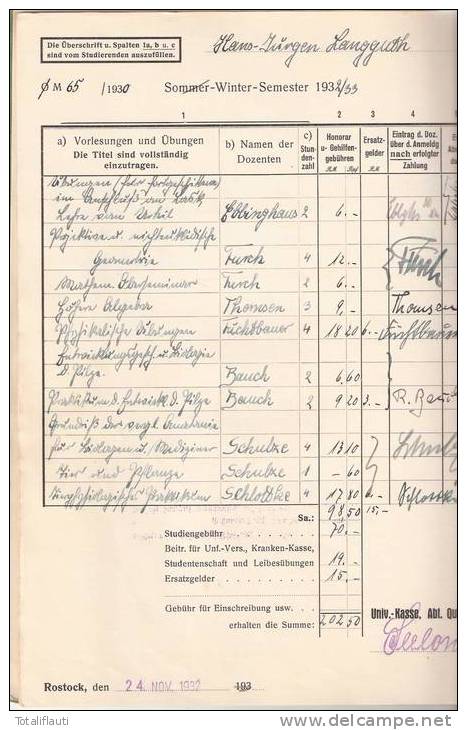 Die Überschrift u. Spalten 1a, b u. c
sind vom Studierenden auszufüllen.
Hans-Jürgen Langguth
M 65 / 1930 Sommer-Winter-Semester 1932/33
1 2 3 4
a) Vorlesungen und Übungen
Die Titel sind vollständig
einzutragen.
b) Namen der
Dozenten
c)
Stun-
denzahl
Honorar
u- Gehilfen-
gebühren
RM Rpf
Ersatz-
gelder
RM
Eintrag d. Doz.
über d. Anmeldg
nach erfolgter
Zahlung
Übungen (für Fortgeschrittene)
im Anschluß an
Lehre vom Urteil Ebbinghaus 2 6.-
Projektive u. nichteuklidische
Geometrie Furch 4 12.- Furch
Mathem. Oberseminar Furch 2 6.-
Höhere Algebra Thomsen 3 9.- Thomsen
Physikalische Übungen Füchtbauer 4 18 20 6.- Füchtbauer
Entwicklungsgesch. u. Biologie
d. Pilze. Bauch 2 6.60
Praktikum d. Entwickl. d. Pilze Bauch 2 9 20 3.- R. Bauch
Grundriß der vergl. Anatomie
für Biologen u. Mediziner Schulze 4 13 10
Tier und Pflanze Schulze 1 - 60
Tierphysiologisches Praktikum Schlottke 4 17 80 6.- Schlottke
Sa.: 98 50 15.-
Studiengebühr 70.-
Beitr. für Unf.-Vers., Kranken-Kasse,
Studentenschaft und Leibesübungen 19.-
Ersatzgelder 15.-
Gebühr für Einschreibung usw.
erhalten die Summe: 202 50
Univ.-Kasse, Abt. Qu
Rostock, den 24. NOV. 1932 193
Totaliflauti delcampe.net